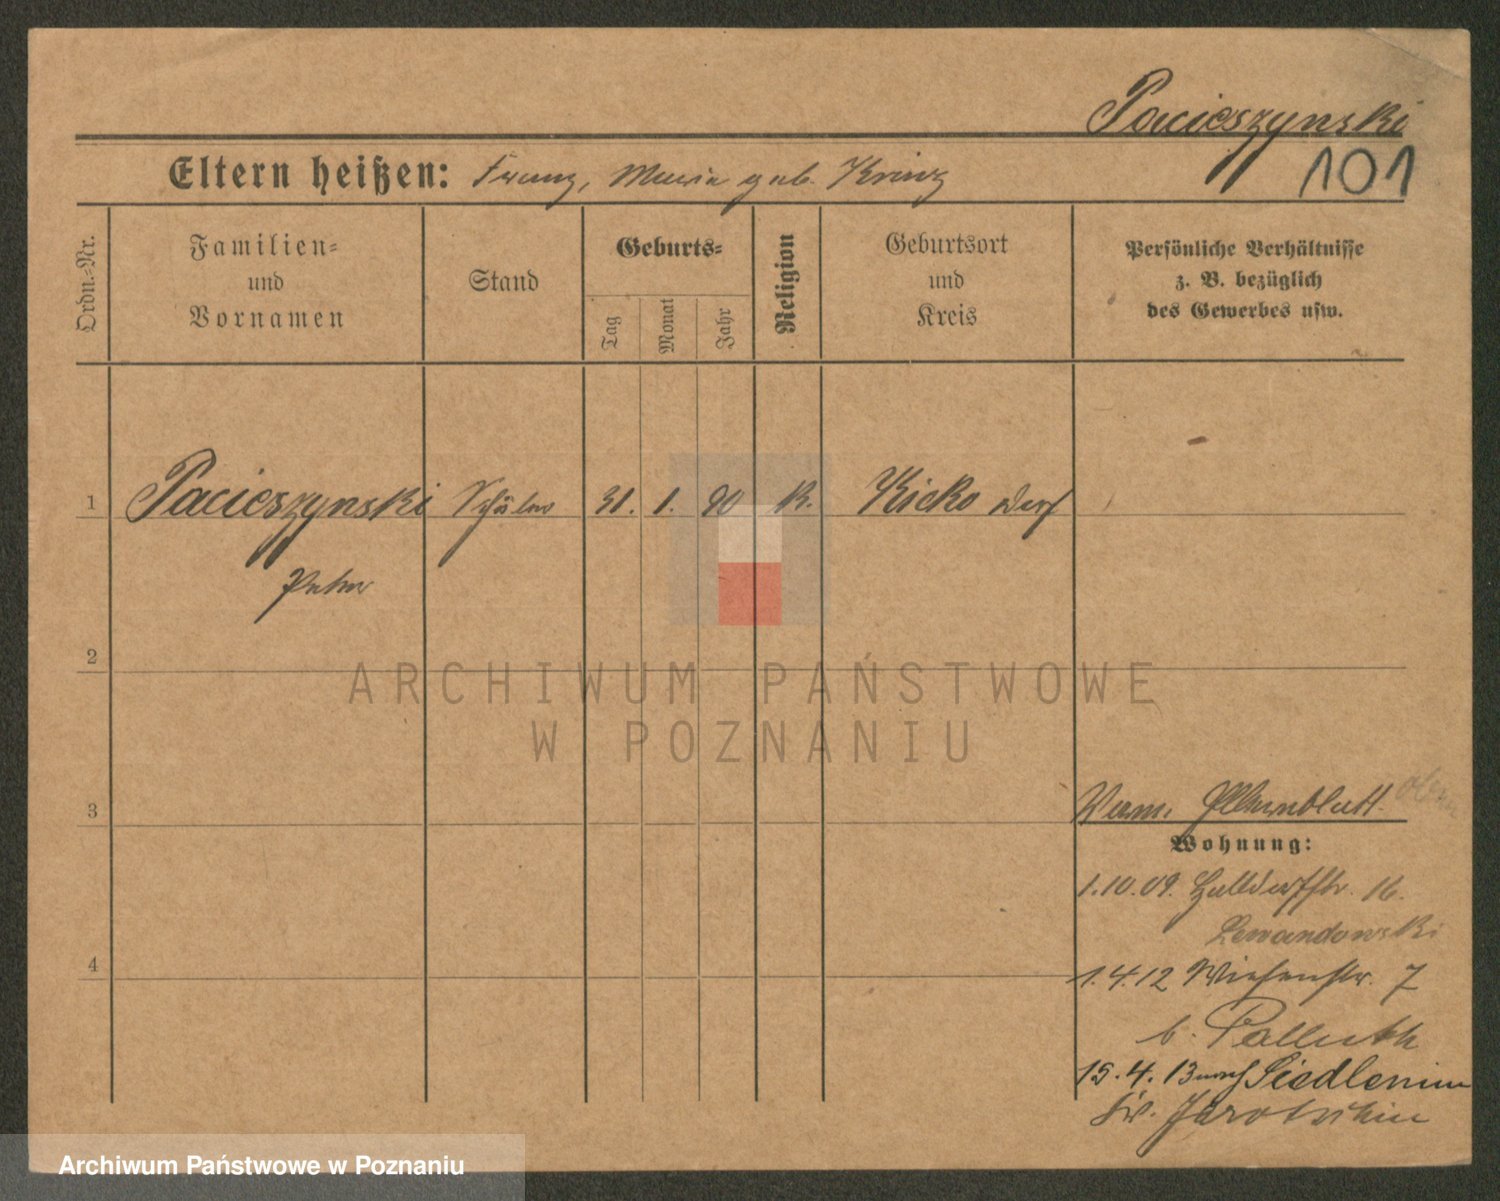 Pacieszynski
101
Eltern heißen: Franz, Maria geb. Krinz
Ordn.-Nr.
Familien-
und
Vornamen
Stand
Geburts-
Tag
Monat
Jahr
Religion
Geburtsort
und
Kreis
Persönliche Verhältnisse
z. B. bezüglich
des Gewerbes usw.
1 Pacieszynski Schüler 31. 1. 90 K. Kicko Dorf
Peter
2
3
4
Elternblatt
Wohnung:
1.10.09. Halldorfstr. 16.
Lewandowski
1.4.12 Wiesenstr. 7
b. Palluth
15.4.13 nach Siedlemin
Kr. Jarotschin
ARCHIWUM PAŃSTWOWE
W POZNANIU
Archiwum Państwowe w Poznaniu